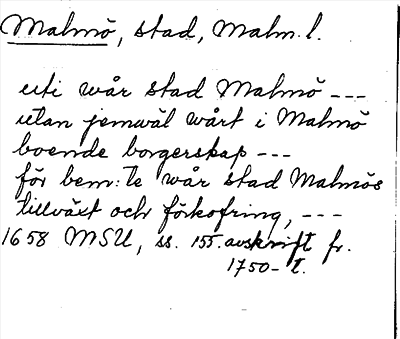 Malmö, stad, Malm. l.
uti wår stad Malmö ---
utan jemwäl wårt i Malmö
boende borgerskap ---
för bem:te wår stad Malmös
tillväxt och förkofring, ---
1658 MSU, ss. 155. avskrift fr.
1750-t.